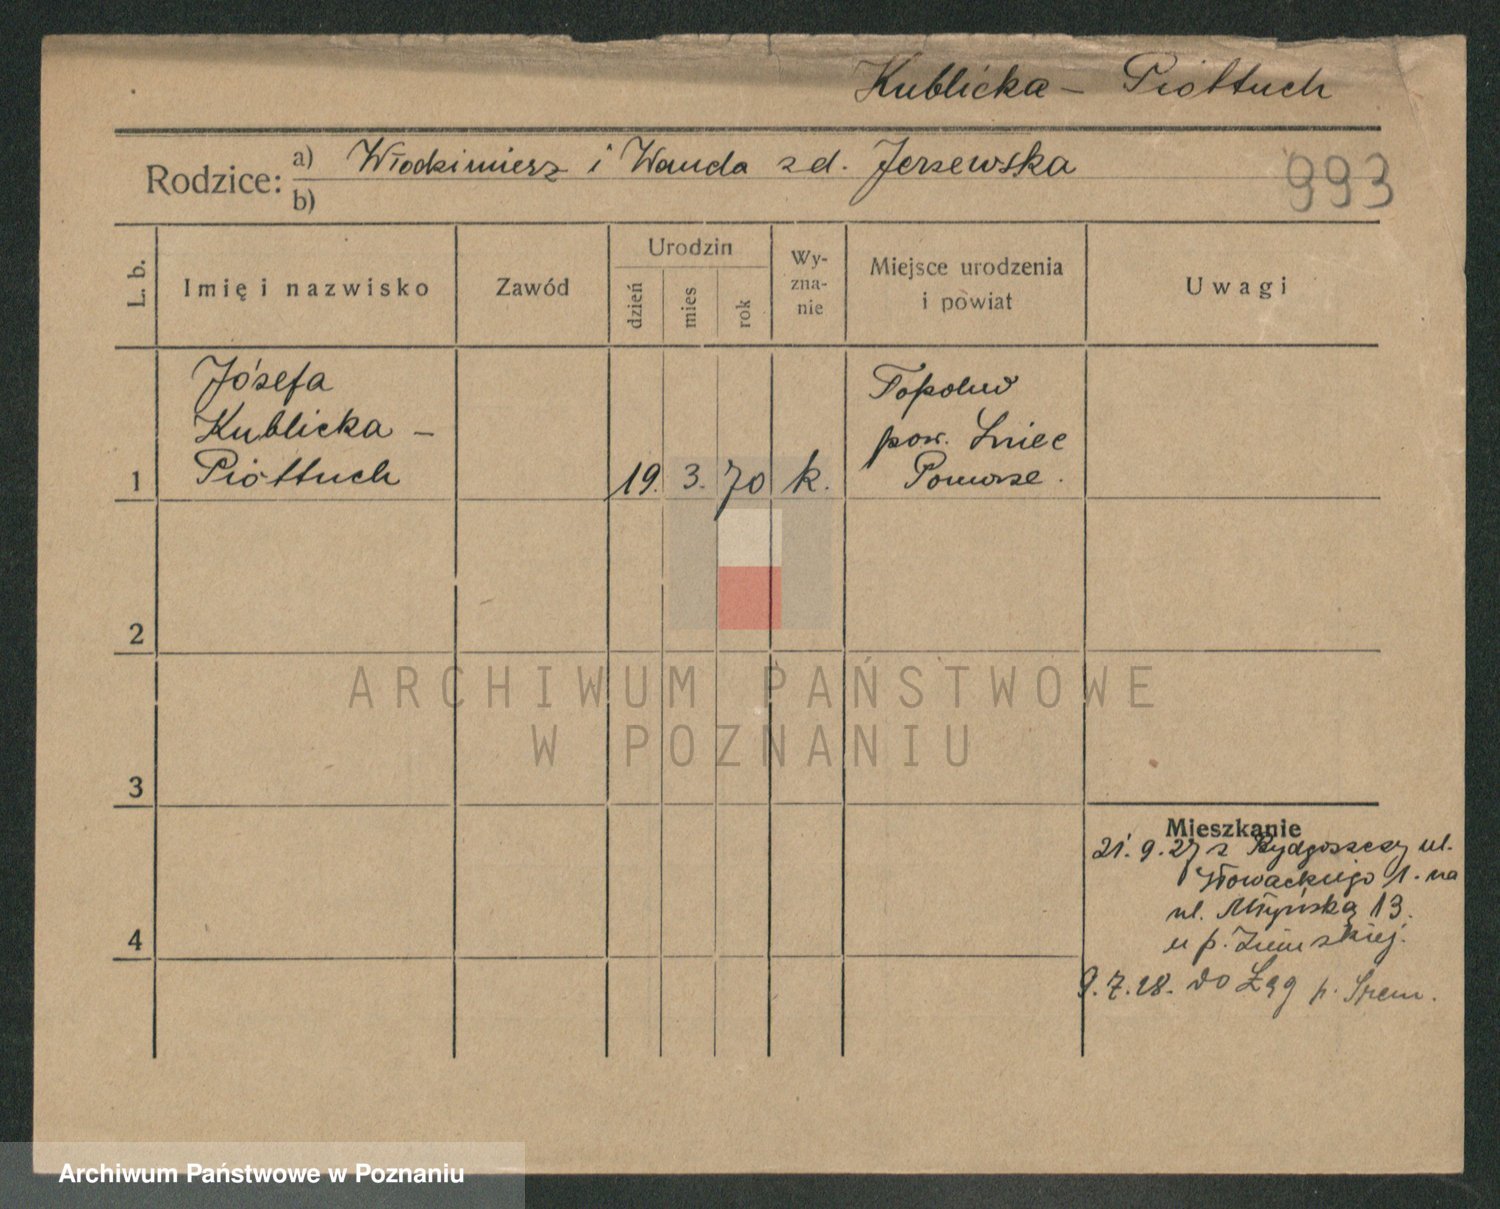 Kublicka - Piółtuch
Rodzice: a) Włodzimierz i Wanda z d. Jerzewska
b)
993
L. b.
Imię i nazwisko
Zawód
Urodzin
dzień
mies
rok
Wy-
zna-
nie
Miejsce urodzenia
i powiat
Uwagi
1
Józefa
Kublicka -
Piółtuch
19. 3. 70
k.
pow.
Pomorze.
2
3
4
ARCHIWUM PAŃSTWOWE
W POZNANIU
Mieszkanie
21. 9. 27 z Bydgoszczy ul.
Słowackiego 1. na
ul. Młyńską 13.
u p. Ziemskiej.
9. 7. 28. do Łęg p. Śrem.
Archiwum Państwowe w Poznaniu